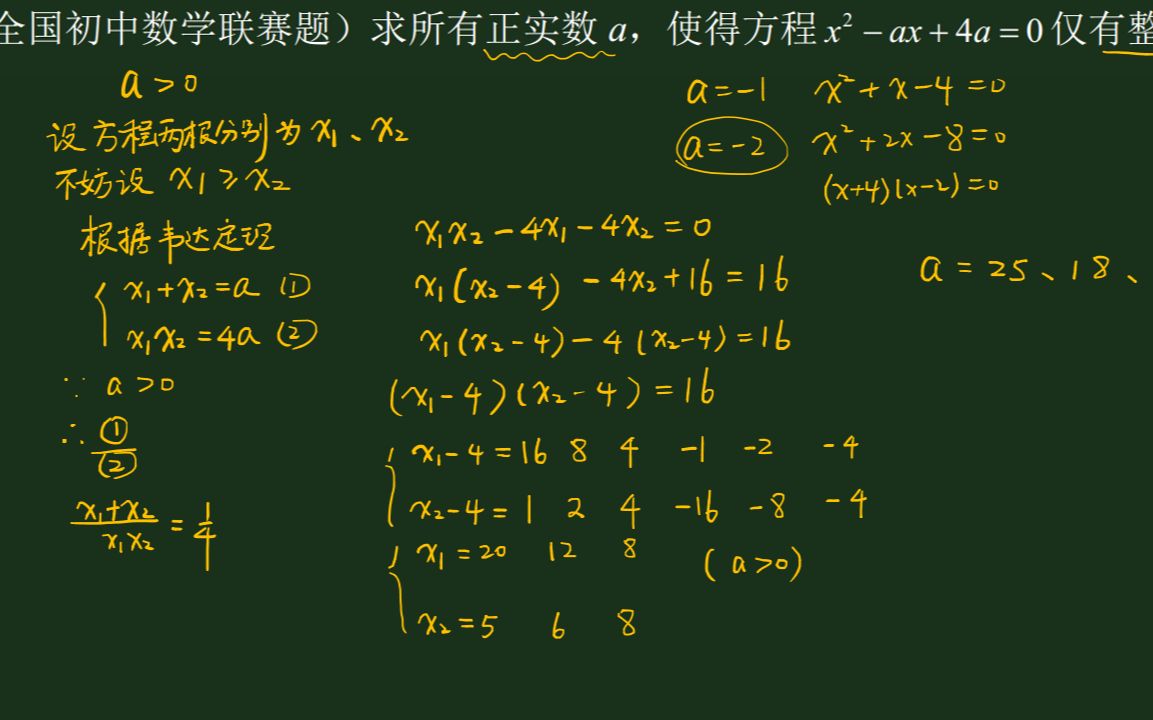 全国初中数学联赛题）求所有正实数 a，使得方程 x² − ax + 4a = 0 仅有整
a > 0
设方程两根分别为 x₁、x₂
不妨设 x₁ ≥ x₂
根据韦达定理
x₁ + x₂ = a ①
x₁x₂ = 4a ②
∵ a > 0
∴ ①/②
(x₁+x₂)/(x₁x₂) = 1/4
x₁x₂ − 4x₁ − 4x₂ = 0
x₁(x₂ − 4) − 4x₂ + 16 = 16
x₁(x₂ − 4) − 4(x₂ − 4) = 16
(x₁ − 4)(x₂ − 4) = 16
x₁ − 4 = 16 8 4 −1 −2 −4
x₂ − 4 = 1 2 4 −16 −8 −4
x₁ = 20 12 8 (a > 0)
x₂ = 5 6 8
a = −1 x² + x − 4 = 0
a = −2 x² + 2x − 8 = 0
(x+4)(x−2) = 0
a = 25、18、